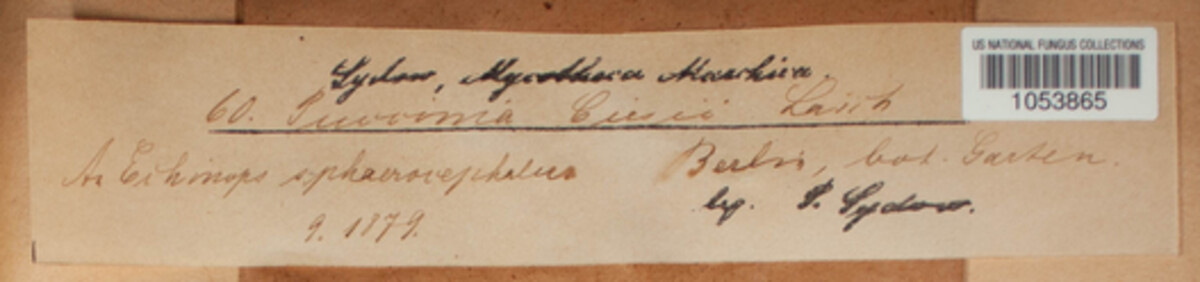 US NATIONAL FUNGUS COLLECTIONS
1053865
Sydow, Mycotheca Marchica.
60. Puccinia Cirsii Lasch
An Echinops sphaerocephalus
Berlin, bot. Garten.
9. 1879.
leg. P. Sydow.